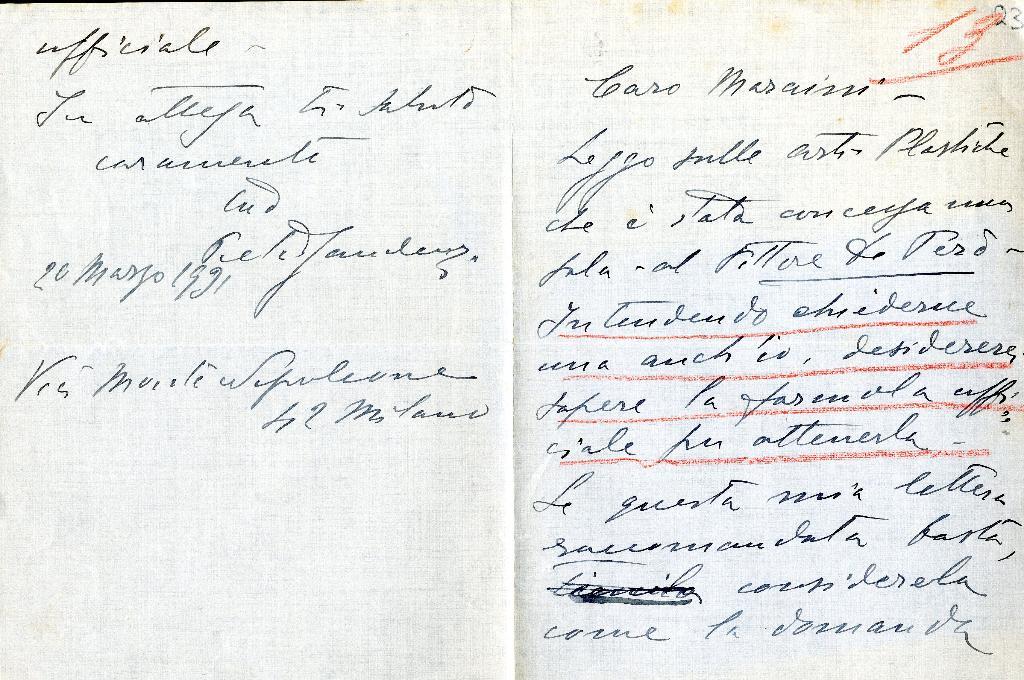 23
13
Caro Maraini -
Leggo sulle arti Plastiche
che è stata concessa una
sala - al Pittore De Pero -
Intendendo chiederne
una anch'io, desidererei
sapere la formola uffi-
ciale per ottenerla -
Se questa mia lettera
raccomandata basta,
considerala
come la domanda
ufficiale -
In attesa ti saluto
caramente
tuo
20 Marzo 1931
Via Monte Napoleone
42 Milano